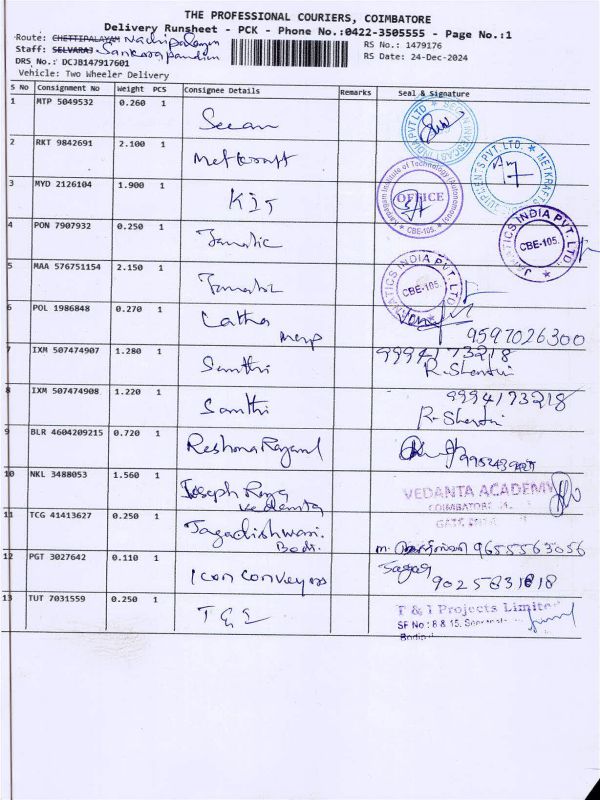 THE PROFESSIONAL COURIERS, COIMBATORE
Delivery Runsheet - PCK - Phone No.:0422-3505555 - Page No.:1
Route: CHETTIPALAYAM Nachipalayam
RS No.: 1479176
Staff: SELVARAJ Sankarapandian
RS Date: 24-Dec-2024
DRS No.: DCJB147917601
Vehicle: Two Wheeler Delivery
S No Consignment No Weight PCS Consignee Details Remarks Seal & Signature
1 MTP 5049532 0.260 1
2 RKT 9842691 2.100 1 Metkraft
METKRAFTS
3 MYD 2126104 1.900 1 KIT
Karpagam Institute of Technology (Autonomous)
OFFICE
CBE-105.
4 PON 7907932 0.250 1 Jamatic
JAMATICS INDIA PVT. LTD.
CBE-105.
5 MAA 576751154 2.150 1 Jamatic
JAMATICS INDIA PVT. LTD.
CBE-105.
6 POL 1986848 0.270 1 Latha
9597026300
7 IXM 507474907 1.280 1 Santhi
9994173218
R. Shanthi
8 IXM 507474908 1.220 1 Santhi
9994173218
R. Shanthi
9 BLR 4604209215 0.720 1
10 NKL 3488053 1.560 1 Joseph Raya
Vedanta
VEDANTA ACADEMY
COIMBATORE
11 TCG 41413627 0.250 1 Jagadishwari.
Bodi.
9655563056
12 PGT 3027642 0.110 1 Icon conveyors
Sagar
9025831818
13 TUT 7031559 0.250 1
T & I Projects Limited
SF No : 8 & 15,